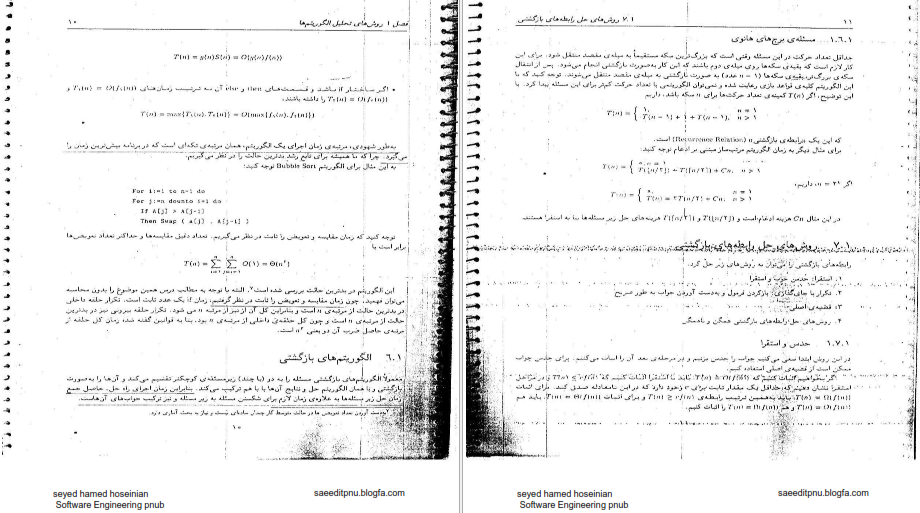 ۱۰ فصل ۱ روش‌های تحلیل الگوریتم‌ها
T(n) = g(n)S(n) = O(g(n)f(n))
• اگر ساختار if باشد و قسمت‌های then و else آن به ترتیب زمان‌های T₁(n) = O(f₁(n)) و
T₂(n) = O(f₂(n)) را داشته باشند.
T(n) = max{T₁(n), T₂(n)} = O(max{f₁(n), f₂(n)})
به‌طور شهودی، مرتبه‌ی زمان اجرای یک الگوریتم، همان مرتبه‌ی تکه‌ای است که در برنامه بیش‌ترین زمان را
می‌گیرد. چرا که ما همیشه برای تابع رشد بدترین حالت را در نظر می‌گیریم.
به این مثال برای الگوریتم Bubble Sort توجه کنید:
For i:=1 to n-1 do
For j:=n downto i+1 do
If A[j] > A[j-1]
Then Swap ( A[j] , A[j-1] )
توجه کنید که زمان مقایسه و تعویض را ثابت در نظر می‌گیریم. تعداد دقیق مقایسه‌ها و حداکثر تعداد تعویض‌ها
برابر است با
این الگوریتم در بدترین حالت بررسی شده است². البته با توجه به مطالب درس همین موضوع را بدون محاسبه
می‌توان فهمید. چون زمان مقایسه و تعویض را ثابت در نظر گرفتیم، زمان if یک عدد ثابت است. تکرار حلقه داخلی
در بدترین حالت از مرتبه‌ی n است و بنابراین کل آن از نیز از مرتبه n می شود. تکرار حلقه بیرونی نیز در بدترین
حالت از مرتبه‌ی n است و چون کل حلقه‌ی داخلی از مرتبه‌ی n بود، بنا به قوانین گفته شده زمان کل حلقه از
مرتبه‌ی حاصل ضرب آن دو یعنی n² است.
۶.۱ الگوریتم‌های بازگشتی
معمولاً الگوریتم‌های بازگشتی مسئله را به دو (یا چند) زیرمسئله‌ی کوچکتر تقسیم می‌کند و آن‌ها را به‌صورت
بازگشتی و با همان الگوریتم حل و نتایج آن‌ها با هم ترکیب می‌کند. بنابراین زمان اجرای راه حل، حاصل جمع
زمان حل زیر مسئله‌ها به علاوه‌ی زمان لازم برای شکستن مسئله به زیر مسئله و نیز ترکیب جواب‌های آن‌هاست.
به‌دست آوردن تعداد تعویض ها در حالت متوسط کار چندان ساده‌ای نیست و نیاز به بحث آماری دارد.
۱۰
seyed hamed hoseinian
saeeditpnu.blogfa.com
Software Engineering pnub
۷.۱ روش‌های حل رابطه‌های بازگشتی ۱۱
۱.۶.۱ مسئله‌ی برج‌های هانوی
حداقل تعداد حرکت در این مسئله وقتی است که بزرگ‌ترین سکه مستقیماً به میله‌ی مقصد منتقل شود. برای این
کار لازم است که بقیه‌ی سکه‌ها روی میله‌ی دوم باشند که این کار به‌صورت بازگشتی انجام می‌شود. پس از انتقال
سکه‌ی بزرگ‌تر، بقیه‌ی سکه‌ها (n − ۱ عدد) به صورت بازگشتی به میله‌ی مقصد منتقل می‌شوند. توجه کنید که با
این الگوریتم کلیه‌ی قواعد بازی رعایت شده و نمی‌توان الگوریتمی با تعداد حرکت کم‌تر برای این مسئله پیدا کرد. با
این توضیح، اگر T(n) کمینه‌ی تعداد حرکت‌ها برای n سکه باشد، داریم
که این یک «رابطه‌ی بازگشتی» (Recurrence Relation) است.
برای مثال دیگر به زمان الگوریتم مرتب‌ساز مبتنی بر ادغام توجه کنید:
داریم:
در این مثال Cn هزینه ادغام است و T(⌊n/۲⌋) و T(⌈n/۲⌉) هزینه‌های حل زیر مسئله‌ها بنا به استقرا هستند.
۷.۱ روش‌های حل رابطه‌های بازگشتی
رابطه‌های بازگشتی را می‌توان به روش‌های زیر حل کرد.
۱. استقرا: حدس خوب و استقرا
۲. تکرار با جای‌گذاری: بازکردن فرمول و به‌دست آوردن جواب به طور صریح
۳. قضیه‌ی اصلی
۴. روش‌های حل رابطه‌های بازگشتی همگن و ناهمگن
۱.۷.۱ حدس و استقرا
در این روش ابتدا سعی می‌کنیم جواب را حدس بزنیم و در مرحله‌ی بعد آن را اثبات می‌کنیم. برای حدس جواب
ممکن است از قضیه‌ی اصلی استفاده کنیم.
seyed hamed hoseinian
saeeditpnu.blogfa.com
Software Engineering pnub